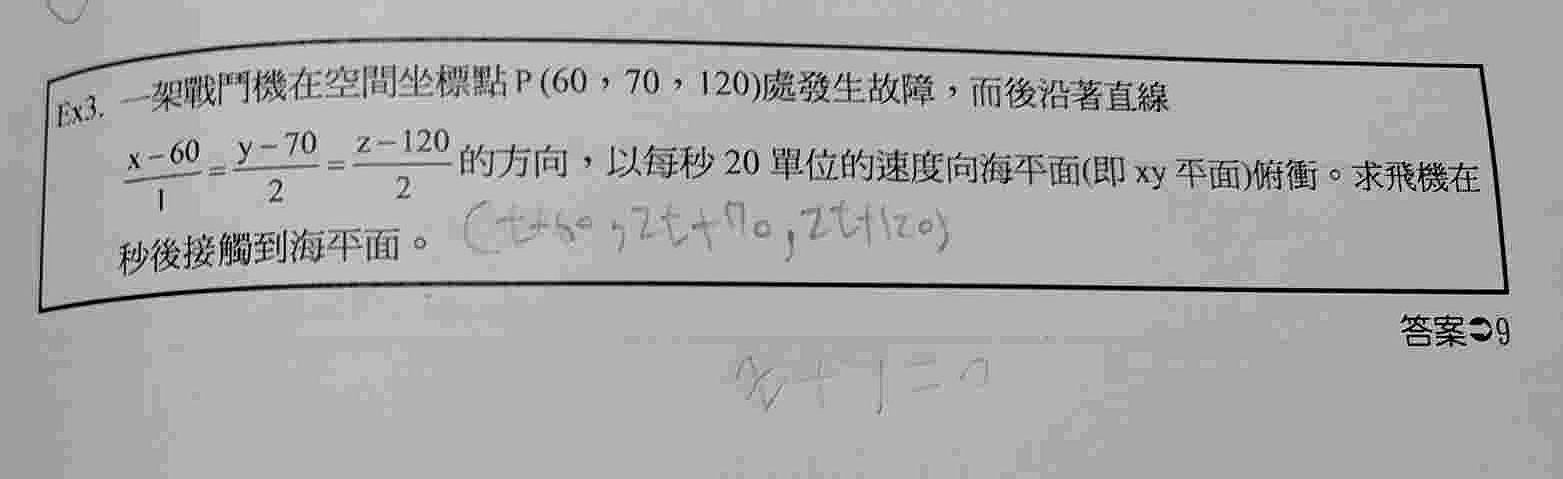 Ex3. 一架戰鬥機在空間坐標點P(60，70，120)處發生故障，而後沿著直線
x－60/1 = y－70/2 = z－120/2 的方向，以每秒 20 單位的速度向海平面(即 xy 平面)俯衝。求飛機在
秒後接觸到海平面。 (t+60, 2t+70, 2t+120)
答案➲9